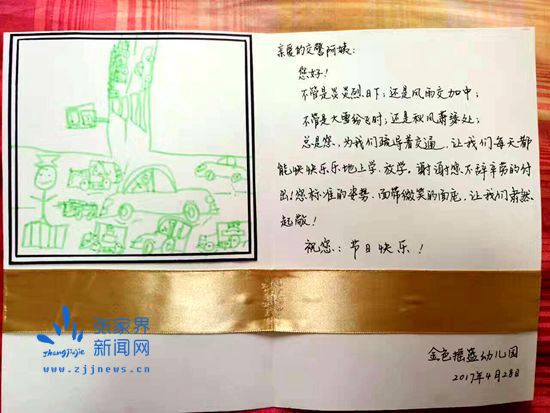 亲爱的交警阿姨:
您好!
不管是炎炎烈日下;还是风雨交加中;
不管是大雪纷飞时;还是秋风萧瑟处;
总是您,为我们疏导着交通,让我们每天都
能快快乐乐地上学、放学,谢谢您不辞辛劳的付
出!您标准的姿势、面带微笑的面庞,让我们肃然
起敬!
祝您:节日快乐!
金色摇篮幼儿园
2017年4月28日
张家界
zhangjiajie
新闻网
www.zjjnews.cn